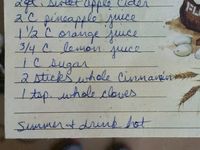 2 qt. Sweet apple Cider
2 C pineapple juice
1 1/2 C orange juice
3/4 C lemon juice
1 C Sugar
2 sticks whole Cinnamon
1 tsp. whole cloves
Simmer & drink hot
FL